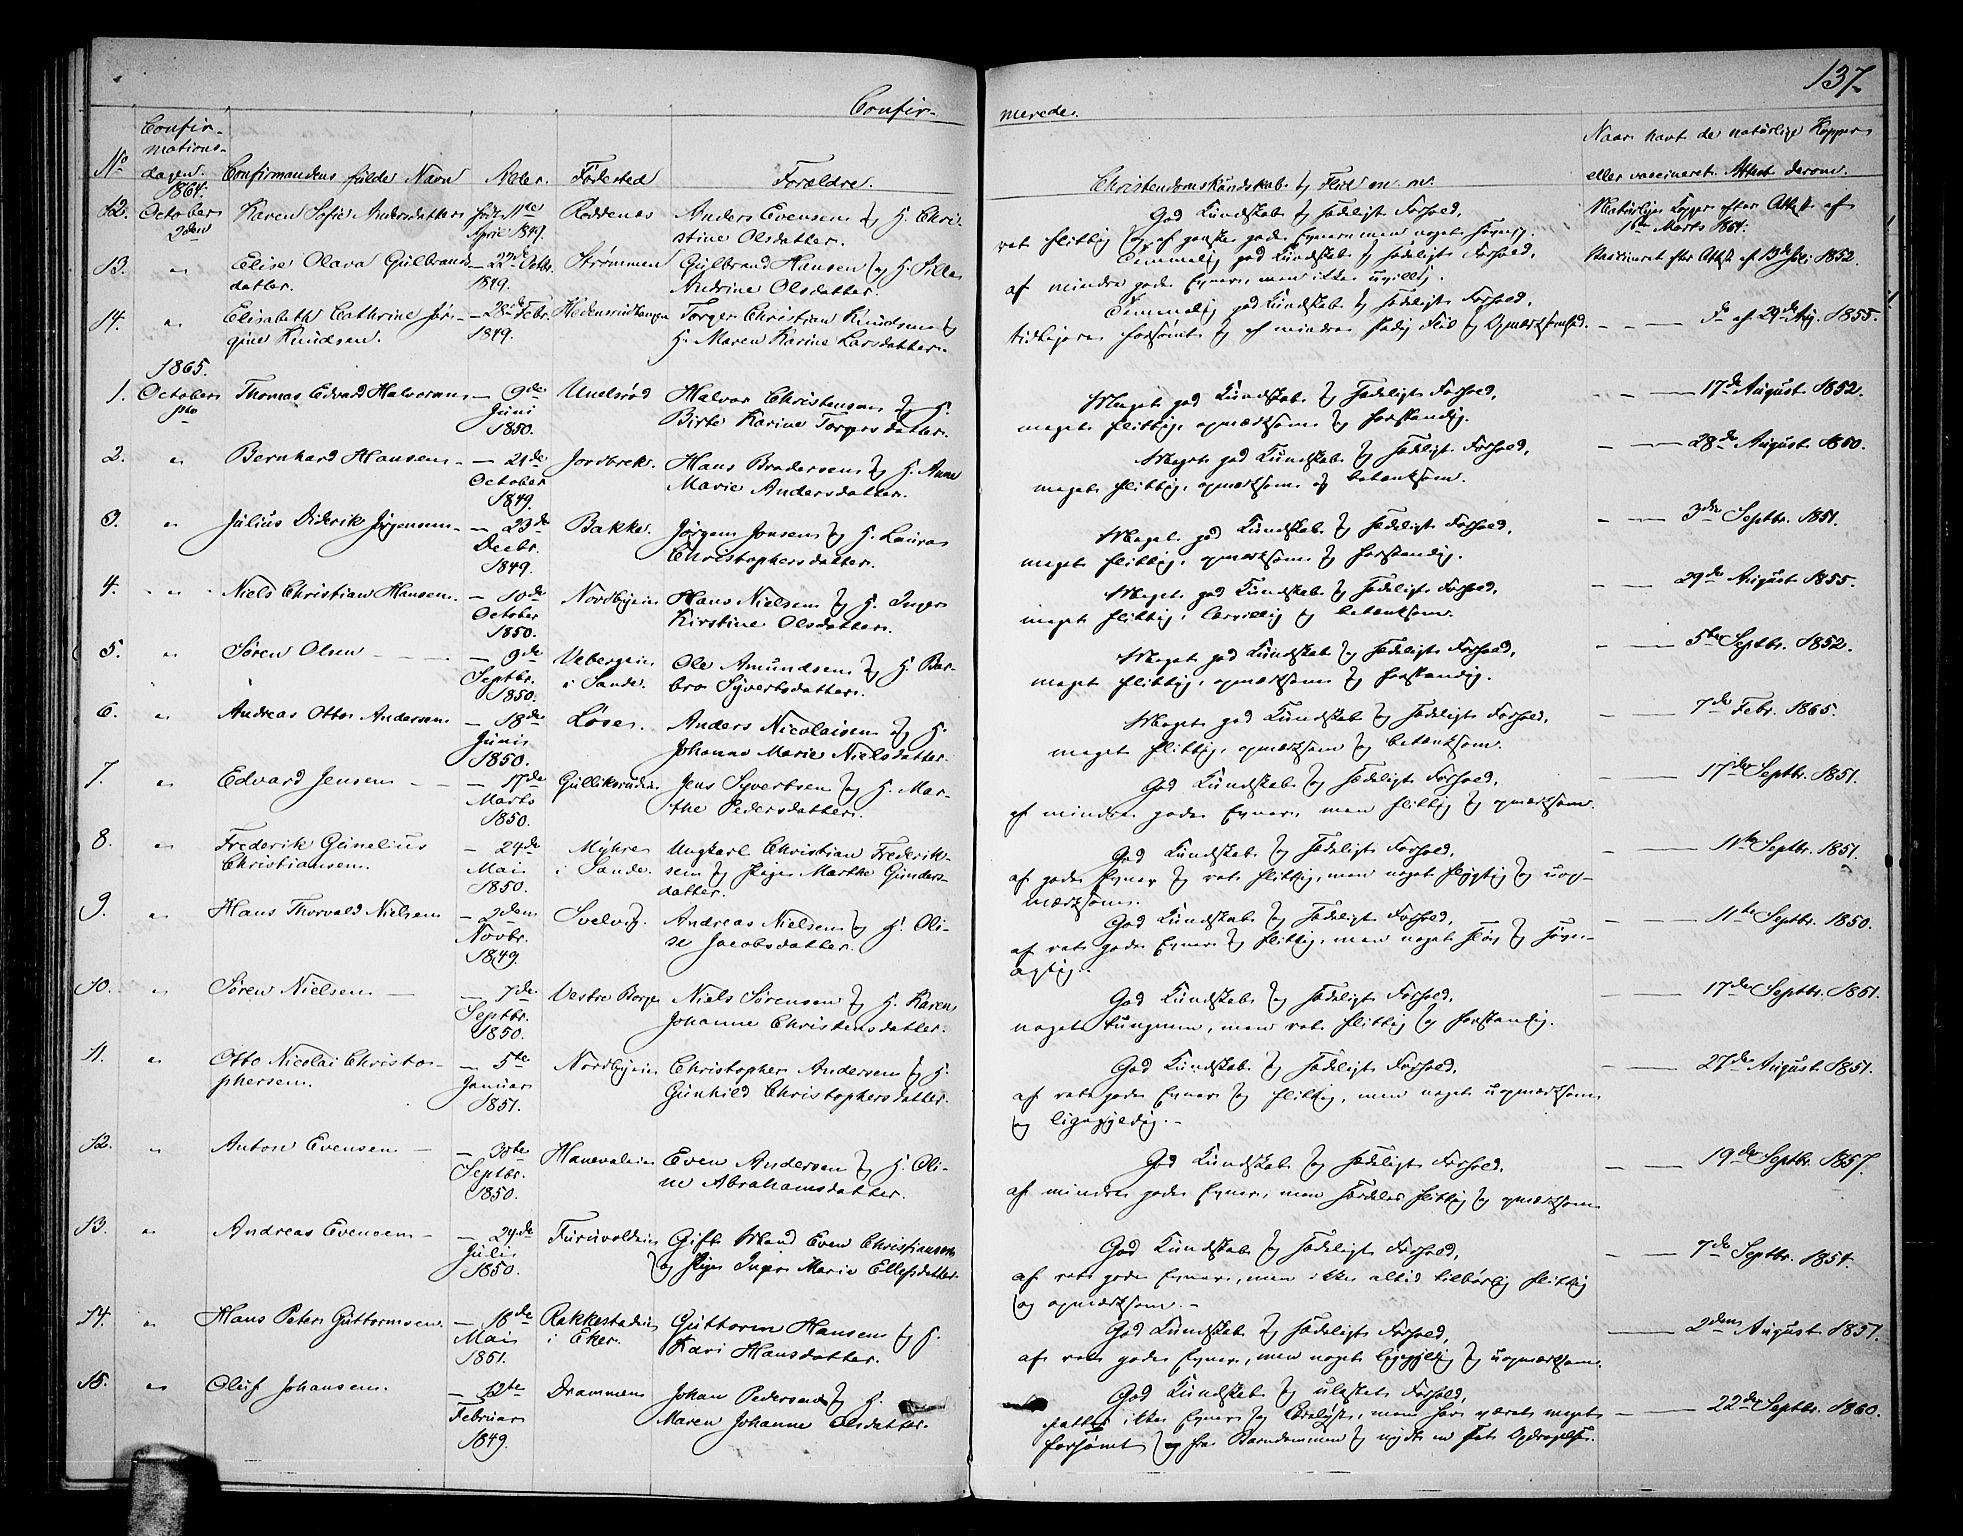 137.
Confir-
merede.
Confir-
mations-
No dagen. Confirmandens fulde Navn Alder. Fødested Forældre. Christendomskundskab, Flid m. m. Naar havt de naturlige Kopper eller vaccineret. Attest derom.
1864.
12. October 2den Karen Sofie Andersdatter født 11te April 1849. Røddenæs Anders Evensen og H. Chri-
stine Olsdatter. God Kundskab og sædeligt Forhold,
ret flittig og af ganske gode Evner, men noget Naturlige Kopper efter Attest af
Marts 1864.
13. " Elise Olava Gulbrands-
datter. — 22de Octbr. 1849. Strømmen Gulbrand Hansen og H.
Andrine Olsdatter. Temmelig god Kundskab og sædeligt Forhold,
af mindre gode Evner, men ikke uvillig. Vaccineret efter Attest af 13de Juli 1852.
14. " Elisabeth Cathrine Jør-
gine Knudsen. — 28de Febr. 1849. Torger Christian Knudsen og
H. Maren Karine Larsdatter. Temmelig god Kundskab og sædeligt Forhold,
tidligere forsømt og af mindre stadig Flid og Opmærksomhed. — — Do af 29de Aug. 1855.
1865.
1. October 1ste Thomas Edvard Halvorsen — 9de Juni 1850. Undsrød Halvor Christensen og H.
Birte Karine Torgersdatter. Meget god Kundskab og sædeligt Forhold,
meget flittig, opmærksom og forstandig. — — 17de August 1852.
2. " Bernhard Hansen — 21de October 1849. Jordbrek. Hans Brodersen og H. Anne
Marie Andersdatter. Meget god Kundskab og sædeligt Forhold,
meget flittig, opmærksom og betænksom. — — 28de August 1850.
3. " Julius Diderik Jørgensen — 23de Decbr. 1849. Bakke. Jørgen Jonsen og H. Laura
Christophersdatter. Meget god Kundskab og sædeligt Forhold,
meget flittig, opmærksom og forstandig. — — 3die Septbr. 1851.
4. " Niels Christian Hansen. — 10de October 1850. Nordbyeie Hans Nielsen og H. Inger
Kirstine Olsdatter. Meget god Kundskab og sædeligt Forhold,
meget flittig, lærvillig og betænksom. — — 29de August 1855.
5. " Søren Olsen — 9de Septbr. 1850. Vebergeie
i Sande. Ole Amundsen og H. Bar-
bro Syvertsdatter. Meget god Kundskab og sædeligt Forhold,
meget flittig, opmærksom og forstandig. — — 5te Septbr. 1852.
6. " Andreas Otto Andersen — 18de Juni 1850. Løse. Anders Nicolaisen og H.
Johanne Marie Nielsdatter. Meget god Kundskab og sædeligt Forhold,
meget flittig, opmærksom og betænksom. — — 7de Febr. 1865.
7. " Edvard Jensen — 17de Marts 1850. Gulliksrudeie Jens Syvertsen og H. Mar-
the Pedersdatter. God Kundskab og sædeligt Forhold,
af mindre gode Evner, men flittig og opmærksom. — — 17de Septbr. 1851.
8. " Frederik Gunelius
Christiansen. — 24de Mai 1850. Myhre
i Sande. Ungkarl Christian Frederik-
sen og Pige Marthe Gunders-
datter. God Kundskab og sædeligt Forhold,
af gode Evner og ret flittig, men noget flygtig og uop-
mærksom. — — 11te Septbr. 1851.
9. " Hans Thorvald Nielsen — 2den Novbr. 1849. Svelvig. Andreas Nielsen og H. Oli-
se Jacobsdatter. God Kundskab og sædeligt Forhold,
af ret gode Evner og flittig, men noget sløv og
agtig. — — 11te Septbr. 1850.
10. " Søren Nielsen — 7de Septbr. 1850. Vestre Borge Niels Sørensen og H. Karen
Johanne Christensdatter. God Kundskab og sædeligt Forhold,
noget tungnem, men ret flittig og forstandig. — — 17de Septbr. 1851.
11. " Otto Nicolai Christo-
phersen. — 5te Januar 1851. Nordbyeie Christopher Andersen og H.
Gunhild Christophersdatter. God Kundskab og sædeligt Forhold,
af ret gode Evner og flittig, men noget uopmærksom
og ligegyldig. — — — 27de August 1851.
12. " Anton Evensen — 30te Septbr. 1850. Hanevoldeie Even Andersen og H. Oli-
ne Abrahamsdatter. God Kundskab og sædeligt Forhold,
af mindre gode Evner, men særdeles flittig og opmærksom — — 19de Septbr. 1857.
13. " Andreas Evensen — 29de Juli 1850. Furuvoldeie Gift Mand Even Christiansen
og Pige Inger Marie Ellefsdatter. God Kundskab og sædeligt Forhold,
af ret gode Evner, men ikke altid tilbørlig flittig
og opmærksom. — — — 7de Septbr. 1851.
14. " Hans Peter Guttormsen. — 18de Mai 1851. Rakkestadeie
i Eker. Guttorm Hansen og H.
Kari Hansdatter. God Kundskab og sædeligt Forhold,
af ret gode Evner, men noget ligegyldig og uopmærksom. — 2den August 1851.
15. " Oluf Johansen. — 12te Februar 1849. Drammen Johan Pedersen og H.
Maren Johanne Olsdatter. God Kundskab og Forhold,
fattes ikke Evner og Lærelyst, men har været meget
forsømt fra Barndommen og nydt en Opdragelse. — — 22de Septbr. 1860.